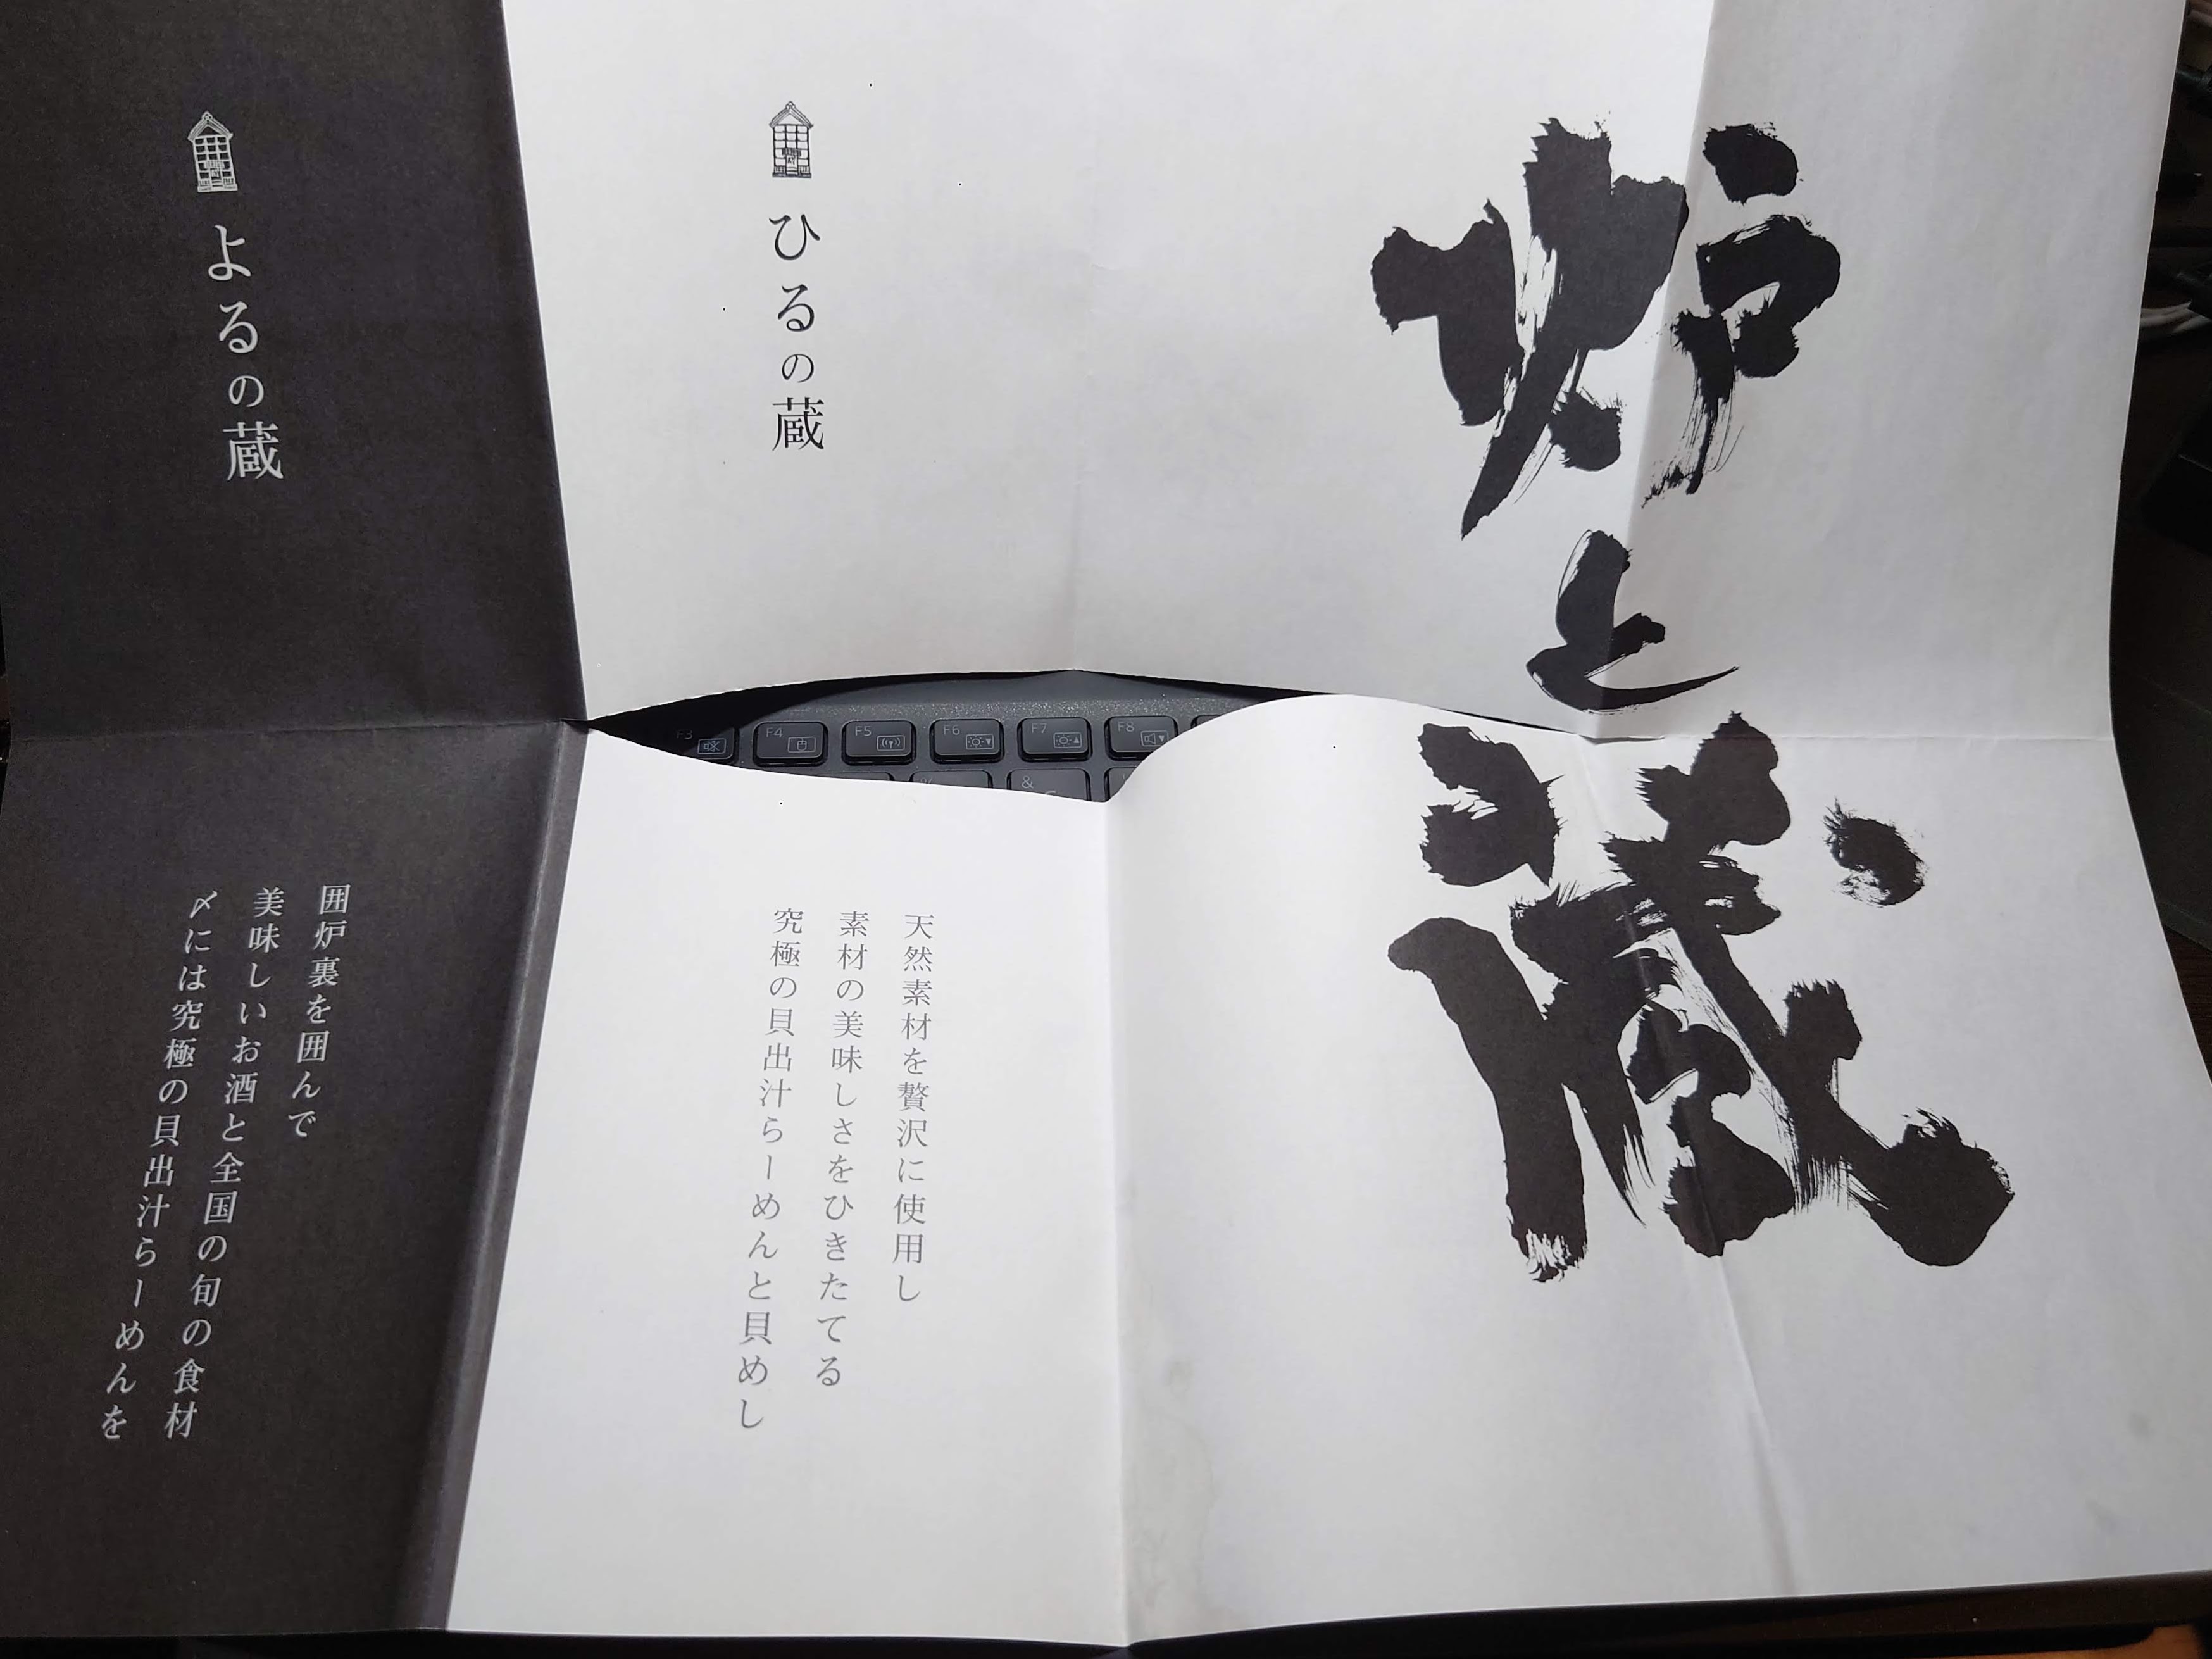 炉と蔵
ひるの蔵
天然素材を贅沢に使用し
素材の美味しさをひきたてる
究極の貝出汁らーめんと貝めし
よるの蔵
囲炉裏を囲んで
美味しいお酒と全国の旬の食材
〆には究極の貝出汁らーめんを
F3
F4
F5
F6
F7
F8
&